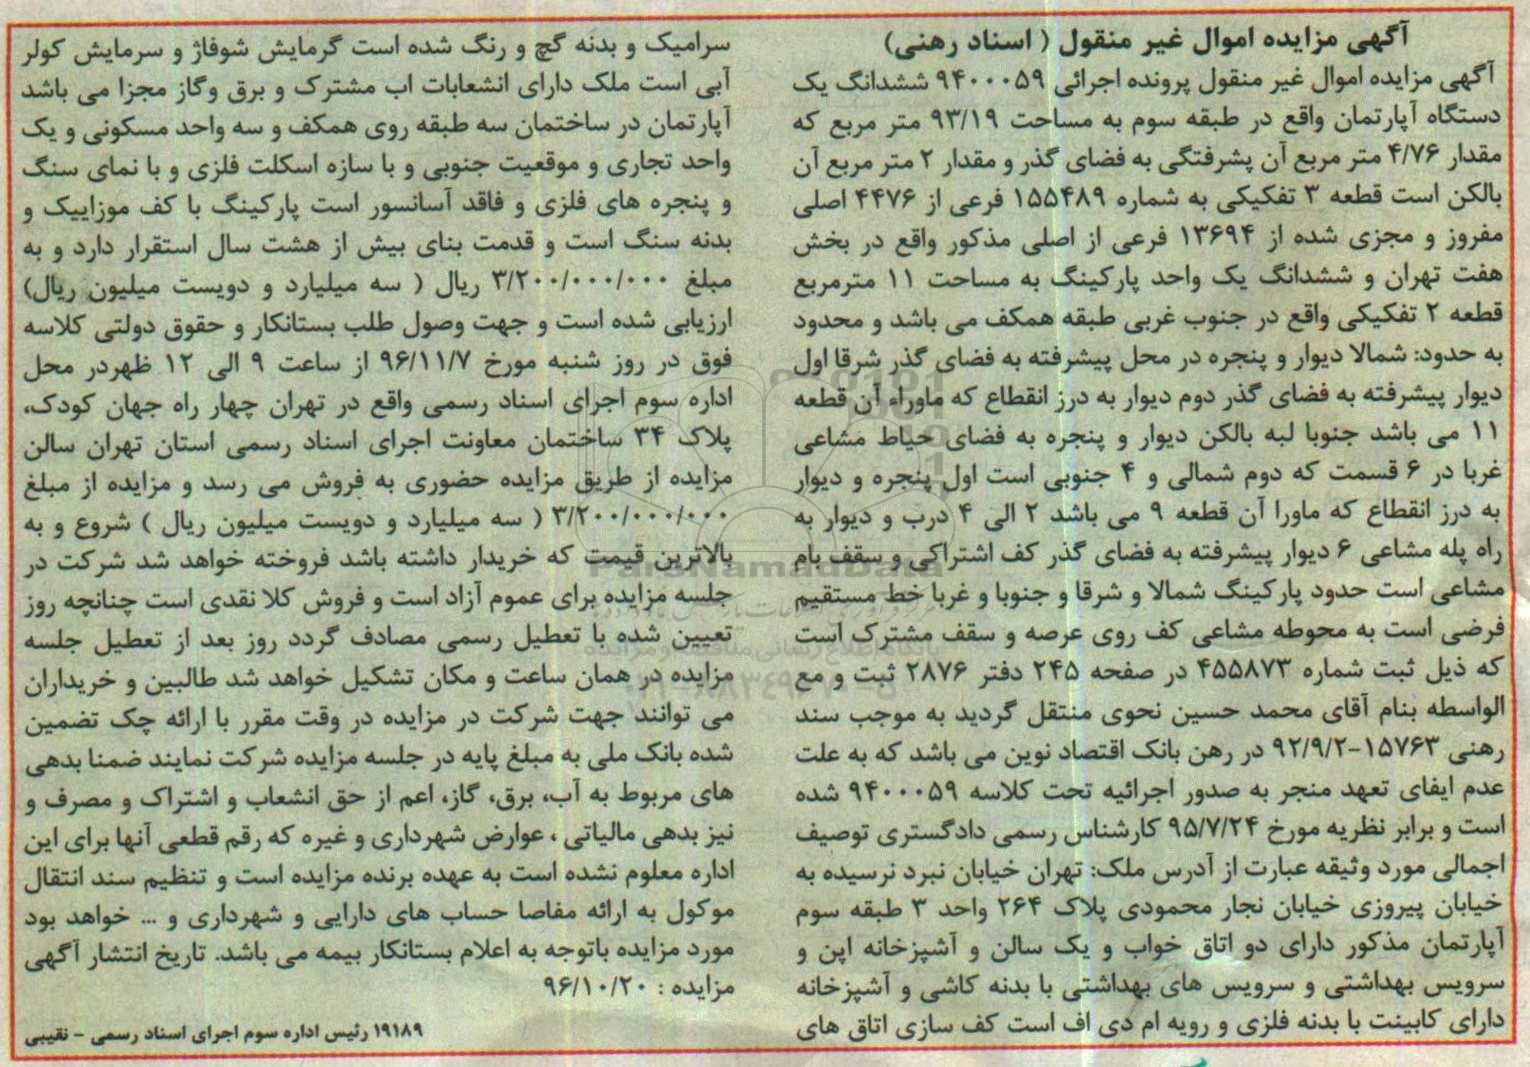 آگهی مزایده اموال غیر منقول ( اسناد رهنی)
آگهی مزایده اموال غیر منقول پرونده اجرائی ۹۴۰۰۰۵۹ ششدانگ یک
دستگاه آپارتمان واقع در طبقه سوم به مساحت ۹۳/۱۹ متر مربع که
مقدار ۴/۷۶ متر مربع آن پشرفتگی به فضای گذر و مقدار ۲ متر مربع آن
بالکن است قطعه ۳ تفکیکی به شماره ۱۵۵۴۸۹ فرعی از ۴۴۷۶ اصلی
مفروز و مجزی شده از ۱۳۶۹۴ فرعی از اصلی مذکور واقع در بخش
هفت تهران و ششدانگ یک واحد پارکینگ به مساحت ۱۱ مترمربع
قطعه ۲ تفکیکی واقع در جنوب غربی طبقه همکف می باشد و محدود
به حدود: شمالا دیوار و پنجره در محل پیشرفته به فضای گذر شرقا اول
دیوار پیشرفته به فضای گذر دوم دیوار به درز انقطاع که ماوراء آن قطعه
۱۱ می باشد جنوبا لبه بالکن دیوار و پنجره به فضای حیاط مشاعی
غربا در ۶ قسمت که دوم شمالی و ۴ جنوبی است اول پنجره و دیوار
به درز انقطاع که ماورا آن قطعه ۹ می باشد ۲ الی ۴ درب و دیوار به
راه پله مشاعی ۶ دیوار پیشرفته به فضای گذر کف اشتراکی و سقف بام
مشاعی است حدود پارکینگ شمالا و شرقا و جنوبا و غربا خط مستقیم
فرضی است به محوطه مشاعی کف روی عرصه و سقف مشترک است
که ذیل ثبت شماره ۴۵۵۸۷۳ در صفحه ۲۴۵ دفتر ۲۸۷۶ ثبت و مع
الواسطه بنام آقای محمد حسین نحوی منتقل گردید به موجب سند
رهنی ۱۵۷۶۳-۹۲/۹/۲ در رهن بانک اقتصاد نوین می باشد که به علت
عدم ایفای تعهد منجر به صدور اجرائیه تحت کلاسه ۹۴۰۰۰۵۹ شده
است و برابر نظریه مورخ ۹۵/۷/۲۴ کارشناس رسمی دادگستری توصیف
اجمالی مورد وثیقه عبارت از آدرس ملک: تهران خیابان نبرد نرسیده به
خیابان پیروزی خیابان نجار محمودی پلاک ۲۶۴ واحد ۳ طبقه سوم
آپارتمان مذکور دارای دو اتاق خواب و یک سالن و آشپزخانه اپن و
سرویس بهداشتی و سرویس های بهداشتی با بدنه کاشی و آشپزخانه
دارای کابینت با بدنه فلزی و رویه ام دی اف است کف سازی اتاق های
سرامیک و بدنه گچ و رنگ شده است گرمایش شوفاژ و سرمایش کولر
آبی است ملک دارای انشعابات اب مشترک و برق وگاز مجزا می باشد
آپارتمان در ساختمان سه طبقه روی همکف و سه واحد مسکونی و یک
واحد تجاری و موقعیت جنوبی و با سازه اسکلت فلزی و با نمای سنگ
و پنجره های فلزی و فاقد آسانسور است پارکینگ با کف موزاییک و
بدنه سنگ است و قدمت بنای بیش از هشت سال استقرار دارد و به
مبلغ ۳/۲۰۰/۰۰۰/۰۰۰ ریال ( سه میلیارد و دویست میلیون ریال)
ارزیابی شده است و جهت وصول طلب بستانکار و حقوق دولتی کلاسه
فوق در روز شنبه مورخ ۹۶/۱۱/۷ از ساعت ۹ الی ۱۲ ظهردر محل
اداره سوم اجرای اسناد رسمی واقع در تهران چهار راه جهان کودک،
پلاک ۳۴ ساختمان معاونت اجرای اسناد رسمی استان تهران سالن
مزایده از طریق مزایده حضوری به فروش می رسد و مزایده از مبلغ
۳/۲۰۰/۰۰۰/۰۰۰ ( سه میلیارد و دویست میلیون ریال ) شروع و به
بالاترین قیمت که خریدار داشته باشد فروخته خواهد شد شرکت در
جلسه مزایده برای عموم آزاد است و فروش کلا نقدی است چنانچه روز
تعیین شده با تعطیل رسمی مصادف گردد روز بعد از تعطیل جلسه
مزایده در همان ساعت و مکان تشکیل خواهد شد طالبین و خریداران
می توانند جهت شرکت در مزایده در وقت مقرر با ارائه چک تضمین
شده بانک ملی به مبلغ پایه در جلسه مزایده شرکت نمایند ضمنا بدهی
های مربوط به آب، برق، گاز، اعم از حق انشعاب و اشتراک و مصرف و
نیز بدهی مالیاتی ، عوارض شهرداری و غیره که رقم قطعی آنها برای این
اداره معلوم نشده است به عهده برنده مزایده است و تنظیم سند انتقال
موکول به ارائه مفاصا حساب های دارایی و شهرداری و ... خواهد بود
مورد مزایده باتوجه به اعلام بستانکار بیمه می باشد. تاریخ انتشار آگهی
مزایده : ۹۶/۱۰/۲۰
۱۹۱۸۹ رئیس اداره سوم اجرای اسناد رسمی - نقیبی
ParsNamadData
پایگاه اطلاع رسانی مناقصه و مزایده